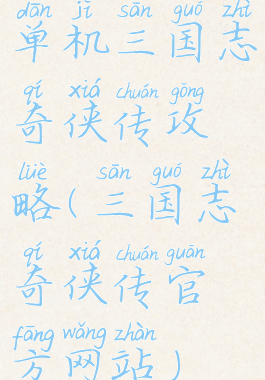 dān jī sān guó zhì
单机三国志
qí xiá chuán gōng
奇侠传攻
lüè sān guó zhì
略(三国志
qí xiá chuán guān
奇侠传官
fāng wǎng zhàn
方网站)